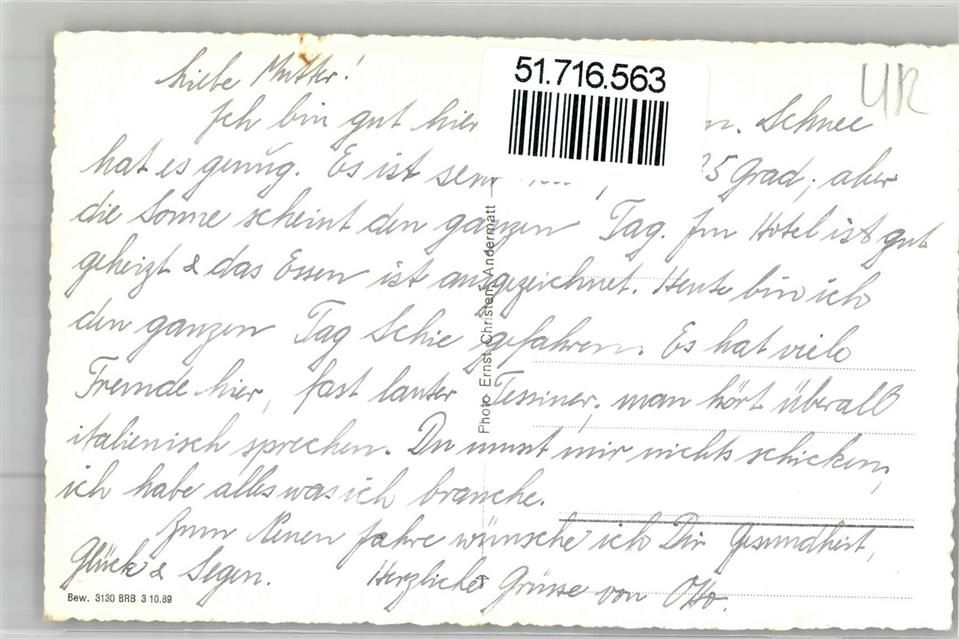 51.716.563
UR
Liebe Mutter!
Ich bin gut hier n. Schnee
hat es genug. Es ist sehr 5 Grad; aber
die Sonne scheint den ganzen Tag. Im Hotel ist gut
geheizt & das Essen ist ausgezeichnet. Heute bin ich
den ganzen Tag Schie gefahren. Es hat viele
Fremde hier, fast lauter Tessiner; man hört überall
italienisch sprechen. Du musst mir nichts schicken,
ich habe alles was ich brauche.
Zum Neuen Jahre wünsche ich Dir Gesundheit,
Glück & Segen. Herzliche Grüsse von Otto.
Photo Ernst Christen, Andermatt
Bew. 3130 BRB 3 10.39